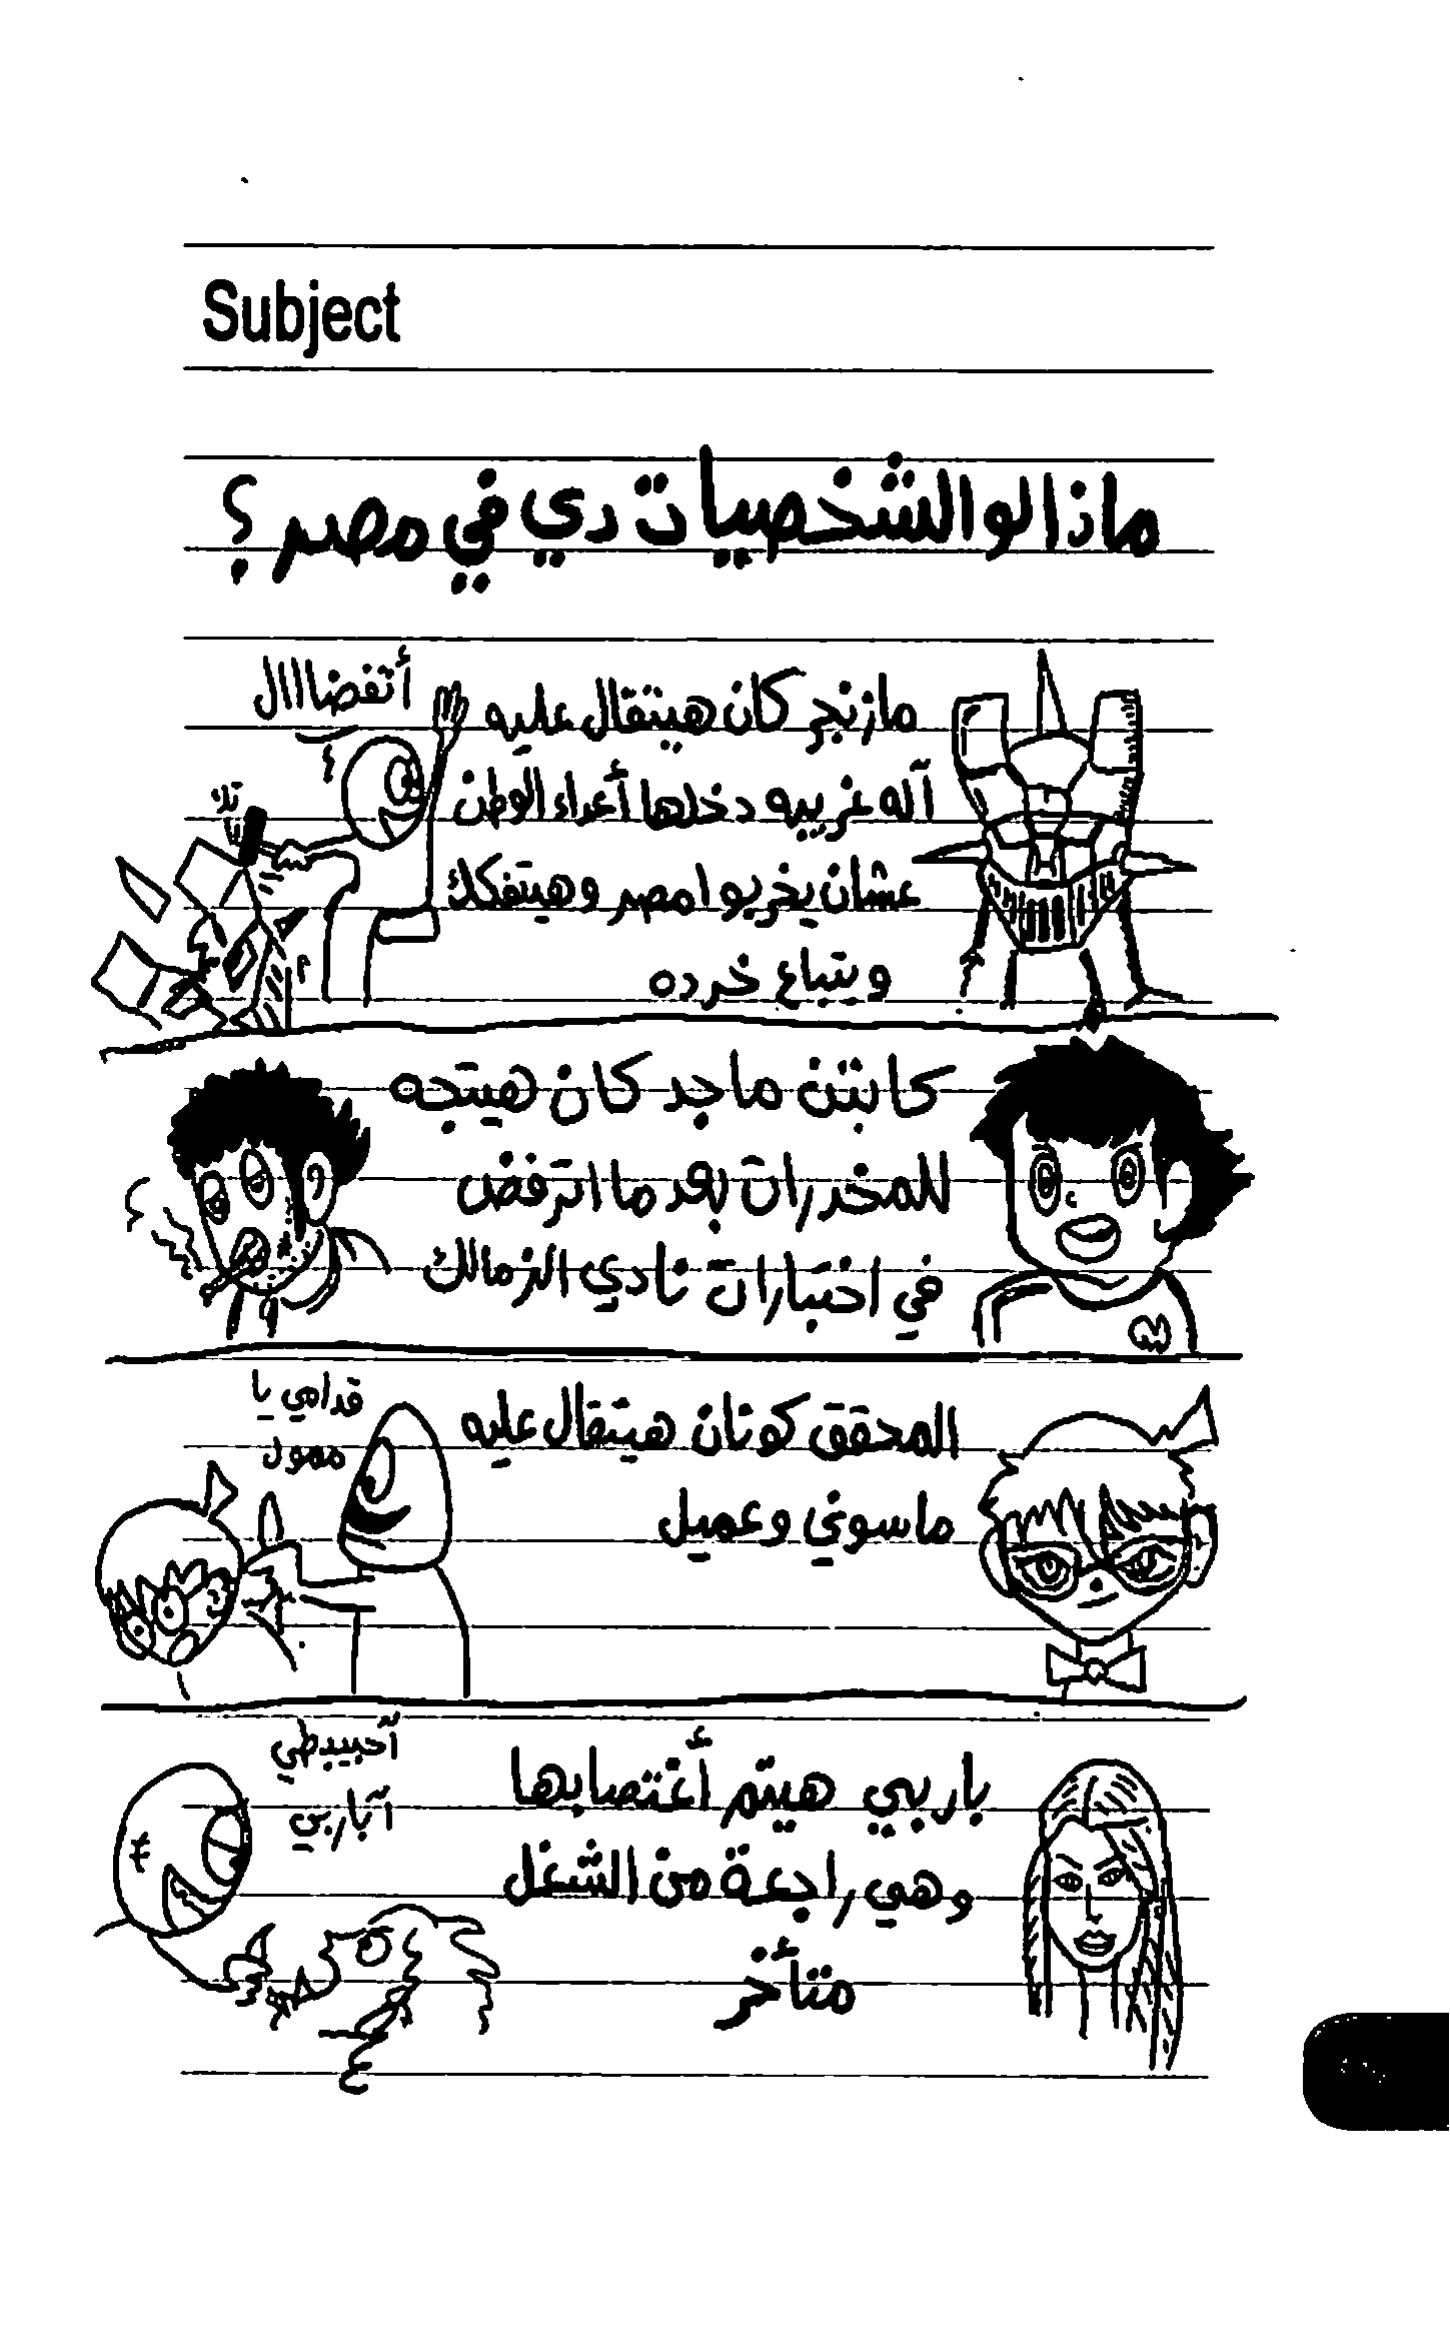 Subject
ماذا لو الشخصيات دي في مصر ؟
مازنجر كان هيتقال عليه
آله غريبه دخلها أعداء الوطن
عشان يخربوا مصر وهيتفكك
ويتباع خرده
أتفضااال
تك
كابتن ماجد كان هيتجه
للمخدرات بعد ما اترفض
في اختبارات نادي الزمالك
المحقق كونان هيتقال عليه
ماسوني وعميل
قدامي يا
ممول
باربي هيتم أغتصابها
وهي راجعة من الشغل
متأخر
آباربي